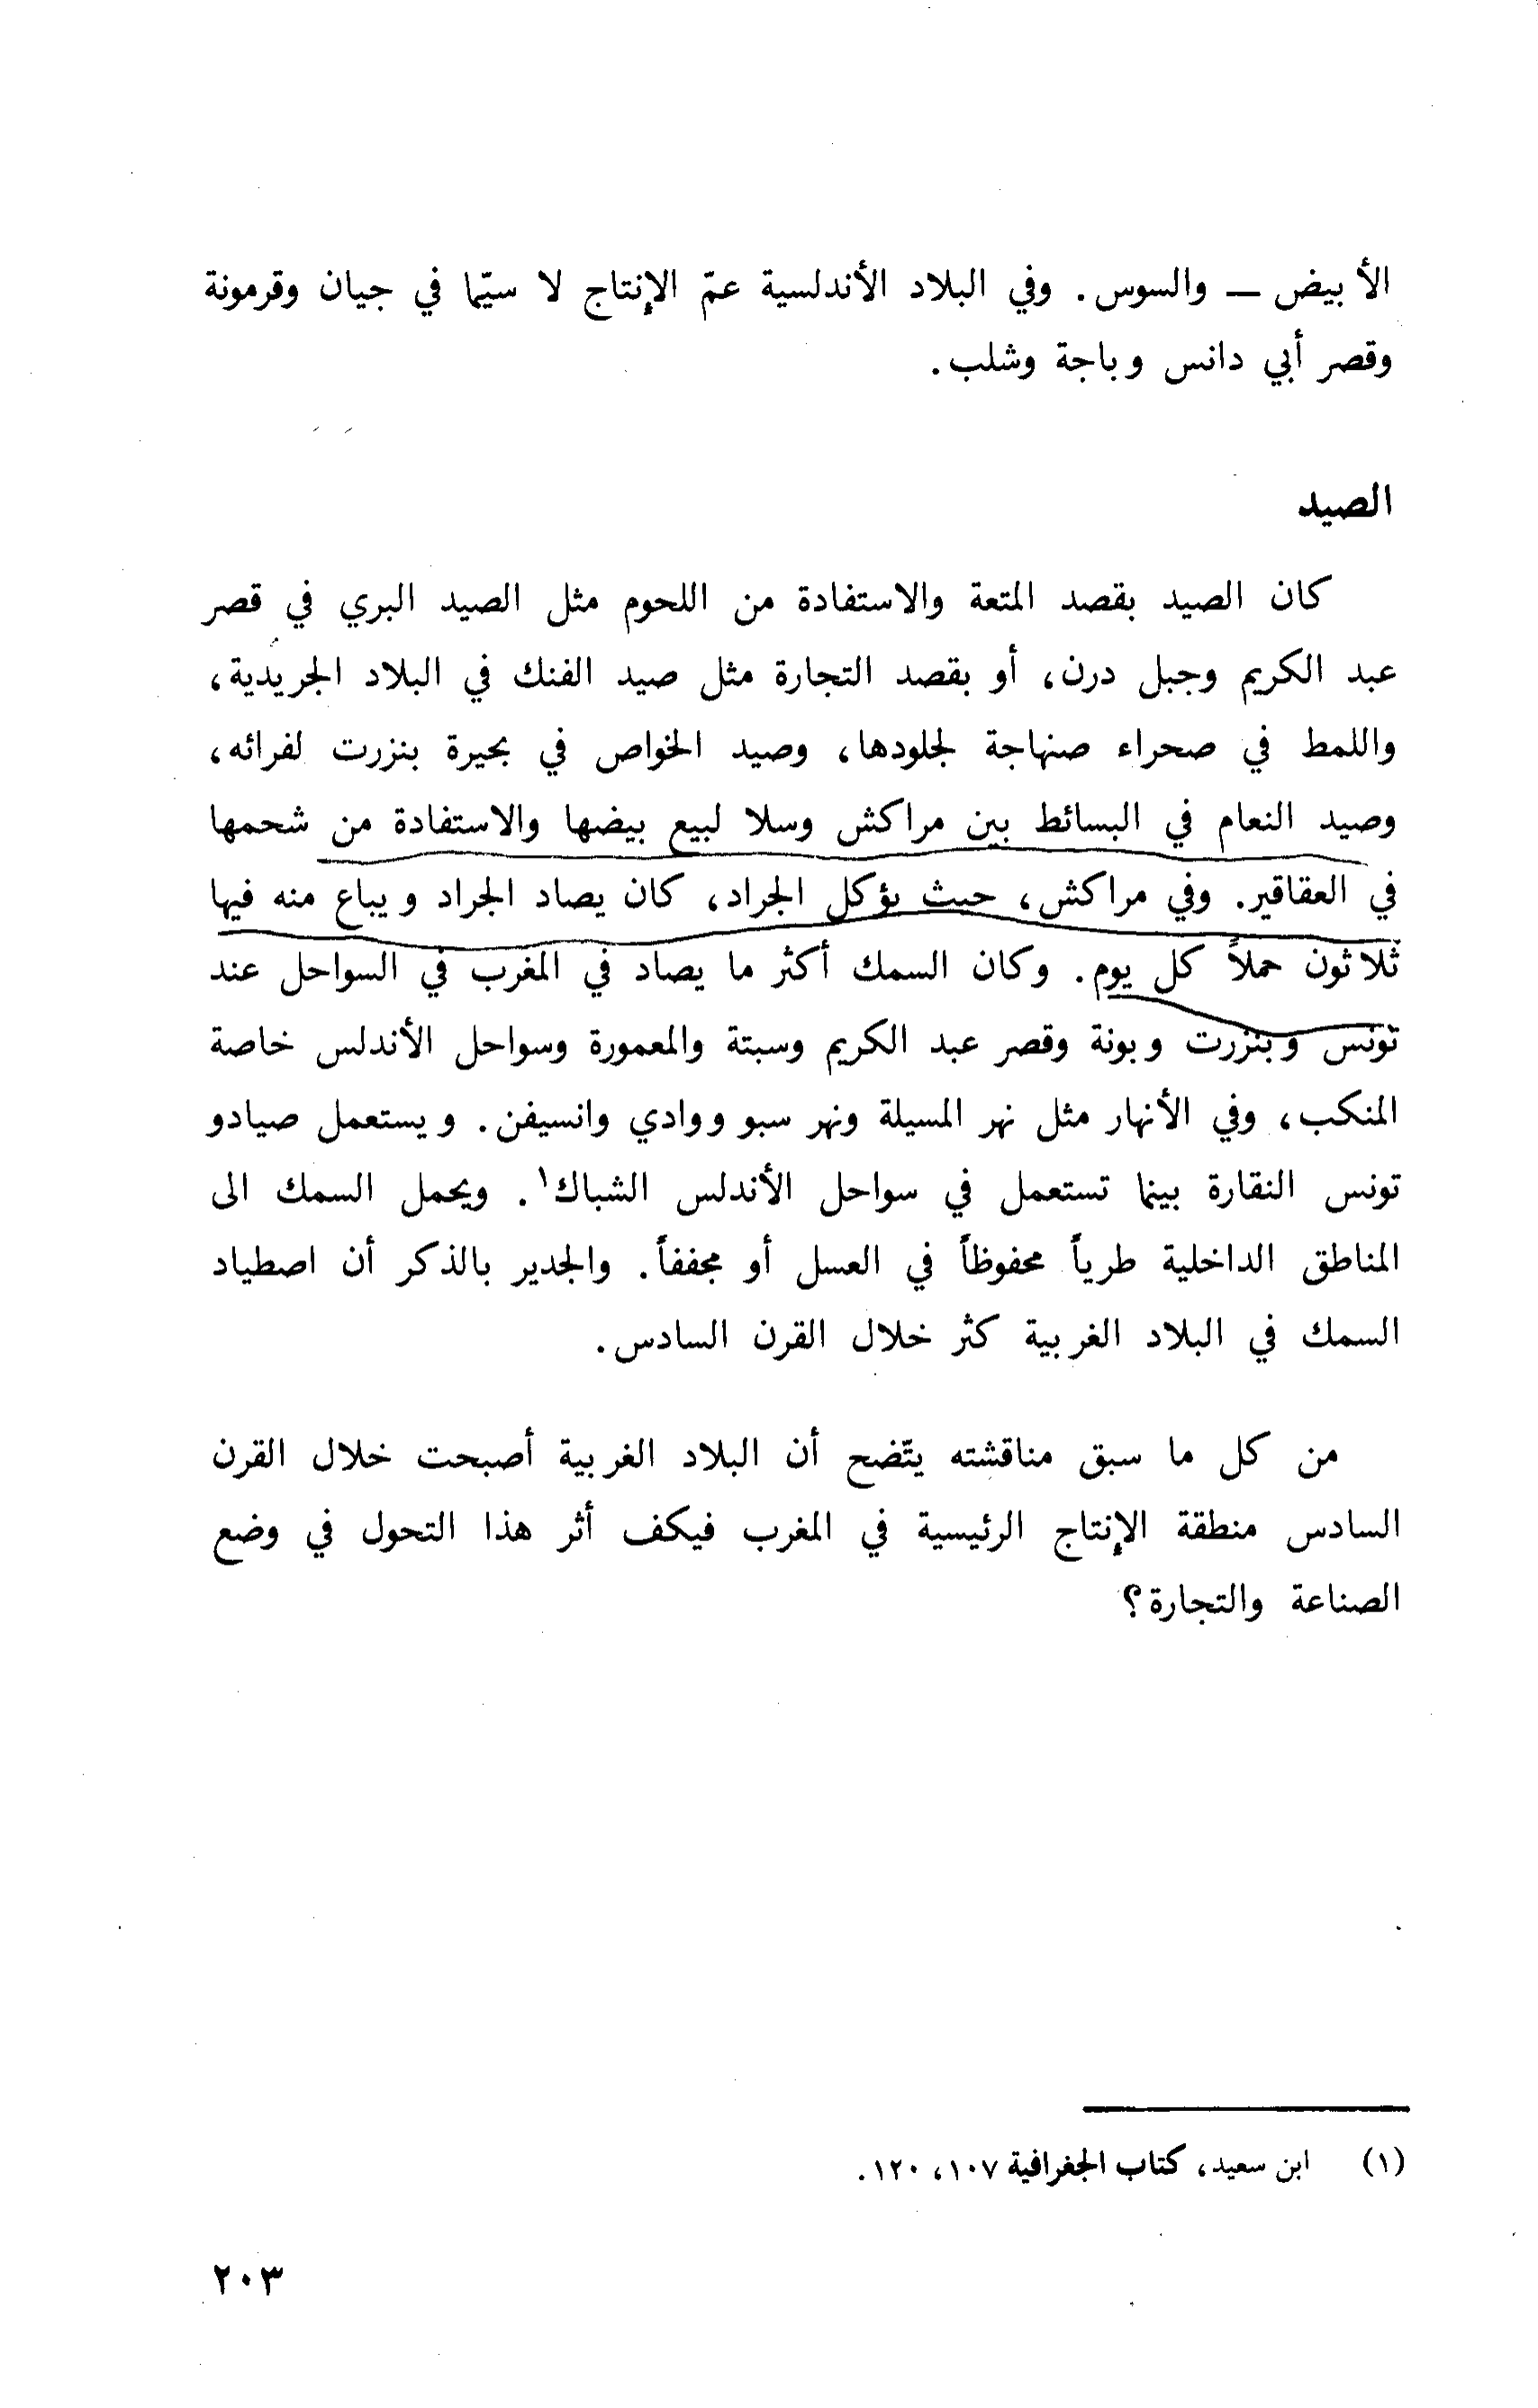 الأبيض — والسوس. وفي البلاد الأندلسية عمّ الإنتاج لا سيّما في جيان وقرمونة
وقصر أبي دانس وباجة وشلب.
الصيد
كان الصيد بقصد المتعة والاستفادة من اللحوم مثل الصيد البري في قصر
عبد الكريم وجبل درن، أو بقصد التجارة مثل صيد الفنك في البلاد الجريدية،
واللمط في صحراء صنهاجة لجلودها، وصيد الخواص في بحيرة بنزرت لفرائه،
وصيد النعام في البسائط بين مراكش وسلا لبيع بيضها والاستفادة من شحمها
في العقاقير. وفي مراكش، حيث يؤكل الجراد، كان يصاد الجراد ويباع منه فيها
ثلاثون حملاً كل يوم. وكان السمك أكثر ما يصاد في المغرب في السواحل عند
تونس وبنزرت وبونة وقصر عبد الكريم وسبتة والمعمورة وسواحل الأندلس خاصة
المنكب، وفي الأنهار مثل نهر المسيلة ونهر سبو ووادي وانسيفن. ويستعمل صيادو
تونس النقارة بينما تستعمل في سواحل الأندلس الشباك١. ويحمل السمك الى
المناطق الداخلية طرياً محفوظاً في العسل أو مجففاً. والجدير بالذكر أن اصطياد
السمك في البلاد الغربية كثر خلال القرن السادس.
من كل ما سبق مناقشته يتّضح أن البلاد الغربية أصبحت خلال القرن
السادس منطقة الإنتاج الرئيسية في المغرب فيكف أثر هذا التحول في وضع
الصناعة والتجارة؟
(١) ابن سعيد، كتاب الجغرافية ١٠٧، ١٢٠.
٢٠٣